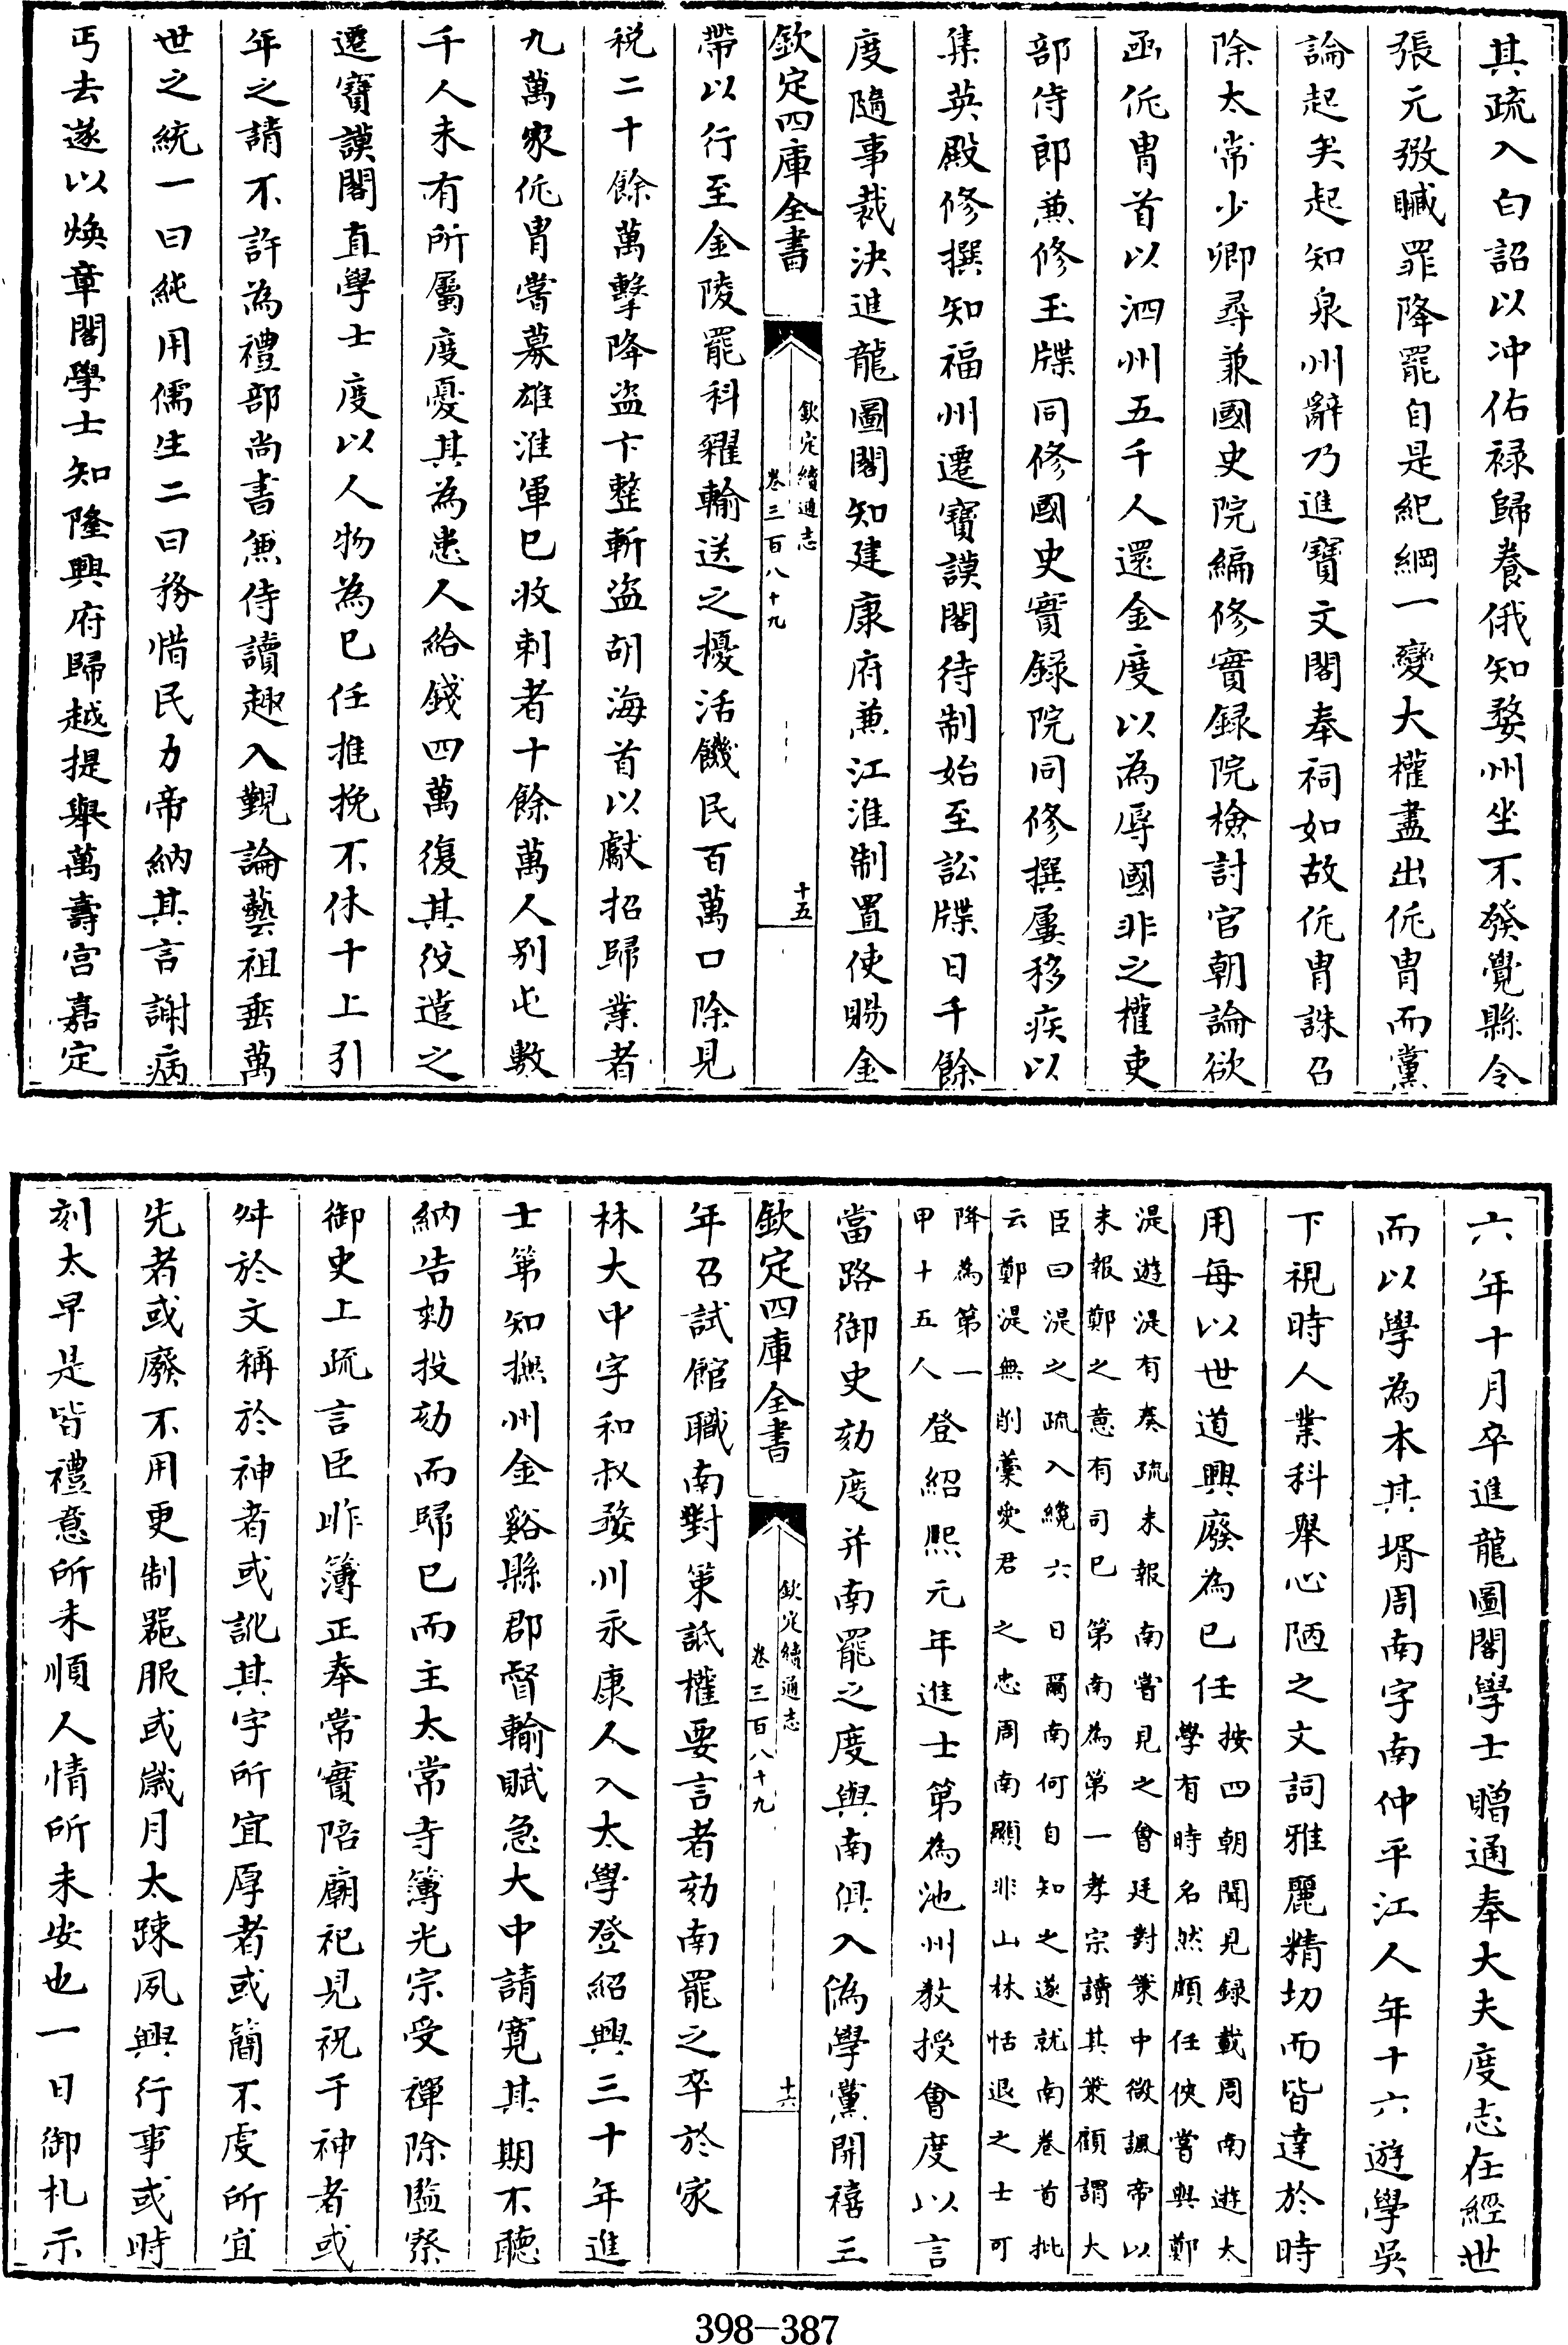 其疏入白詔以冲佑祿歸養俄知婺州坐不發覺縣令
張元弼贓罪降罷自是紀綱一變大權盡出侂胄而黨
論起矣起知泉州辭乃進寶文閣奉祠如故侂胄誅召
除太常少卿尋兼國史院編修實録院檢討官朝論欲
函侂胄首以泗州五千人還金度以為辱國非之權吏
部侍郎兼修玉牒同修國史實録院同修撰屢移疾以
集英殿修撰知福州遷寶謨閣待制始至訟牒日千餘
度隨事裁決進龍圖閣知建康府兼江淮制置使賜金
欽定四庫全書
欽定續通志
卷三百八十九
十五
帶以行至金陵罷科糴輸送之擾活饑民百萬口除見
税二十餘萬擊降盜卞整斬盜胡海首以獻招歸業者
九萬家侂胄嘗募雄淮軍已收刺者十餘萬人别屯數
千人未有所屬度憂其為患人給錢四萬復其役遣之
遷寶謨閣直學士度以人物為已任推挽不休十上引
年之請不許為禮部尚書兼侍讀趣入覲論藝祖垂萬
世之統一曰純用儒生二曰務惜民力帝納其言謝病
丐去遂以煥章閣學士知隆興府歸越提舉萬壽宫嘉定
六年十月卒進龍圖閣學士贈通奉大夫度志在經世
而以學為本其壻周南字南仲平江人年十六遊學吳
下視時人業科舉心陋之文詞雅麗精切而皆達於時
用每以世道興廢為已任按四朝聞見録載周南遊太
學有時名然頗任俠嘗與鄭
湜遊湜有奏疏未報南嘗見之會廷對策中微諷帝以
未報鄭之意有司已第南為第一孝宗讀其策顧謂大
臣曰湜之疏入纔六日爾南何自知之遂就南卷首批
云鄭湜無削藁愛君之忠周南顯非山林恬退之士可
降為第一
甲十五人登紹熙元年進士第為池州教授會度以言
當路御史劾度并南罷之度與南俱入偽學黨開禧三
欽定四庫全書
欽定續通志
卷三百八十九
十六
年召試館職南對策詆權要言者劾南罷之卒於家
林大中字和叔婺州永康人入太學登紹興三十年進
士第知撫州金谿縣郡督輸賦急大中請寛其期不聽
納告勅投劾而歸已而主太常寺簿光宗受禪除監察
御史上疏言臣昨簿正奉常實陪廟祀見祝于神者或
舛於文稱於神者或訛其字所宜厚者或簡不虔所宜
先者或廢不用更制器服或嵗月太踈夙興行事或時
刻太早是皆禮意所未順人情所未安也一日御札示
398-387